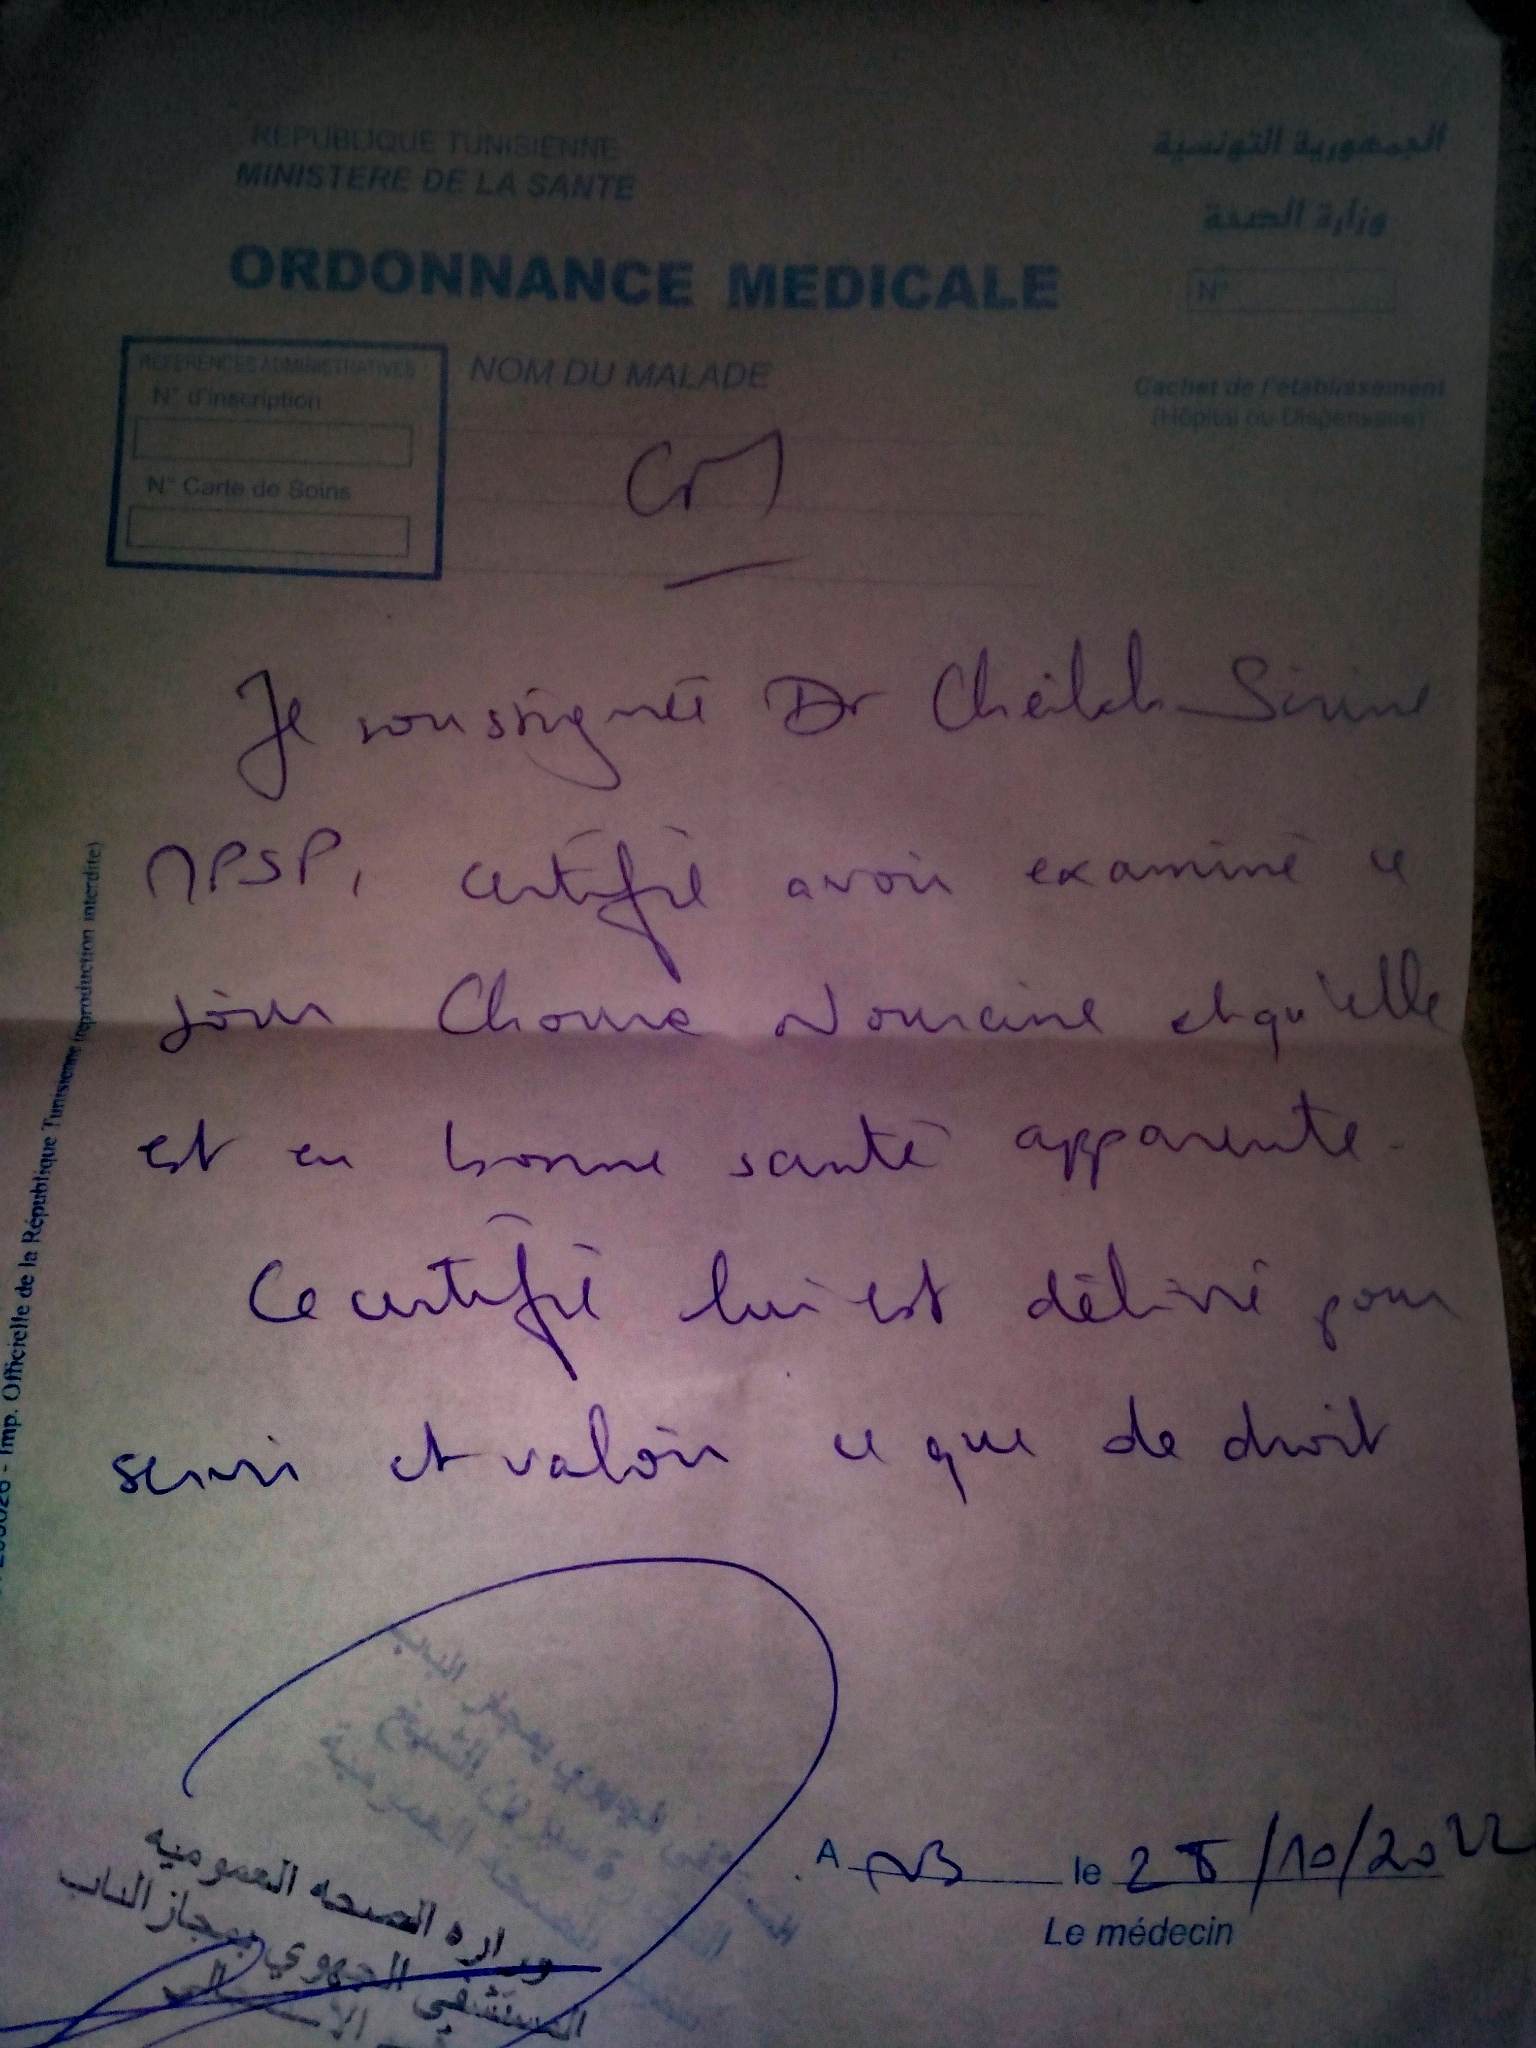 REPUBLIQUE TUNISIENNE
MINISTERE DE LA SANTE
الجمهورية التونسية
وزارة الصحة
ORDONNANCE MEDICALE
N°
REFERENCES ADMINISTRATIVES :
N° d'inscription
N° Carte de Soins
NOM DU MALADE
Cachet de l'établissement
(Hôpital ou Dispensaire)
CM
Je soussignée Dr Cheikh Sirine
MPSP, certifié avoir examiné ce
jour Nourcine et qu'elle
est en bonne santé apparente.
Ce certifié lui est délivré pour
servir et valoir ce que de droit
Imp. Officielle de la République Tunisienne (reproduction interdite)
وزارة الصحة العمومية
المستشفى الجهوي بمجاز الباب
A MB le 28/10/2022
Le médecin